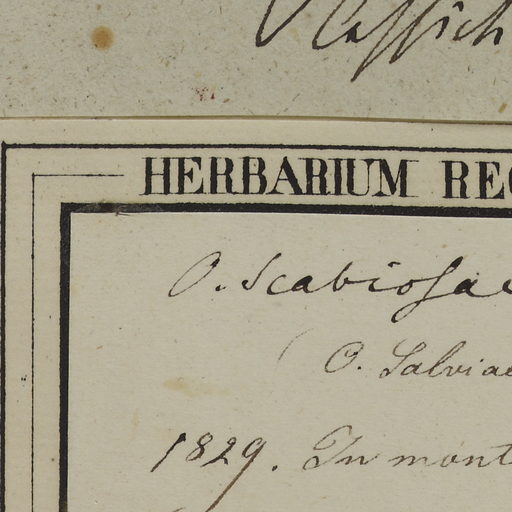 HERBARIUM REG
O. Scabiosae
O. Salviae
1829. In mont